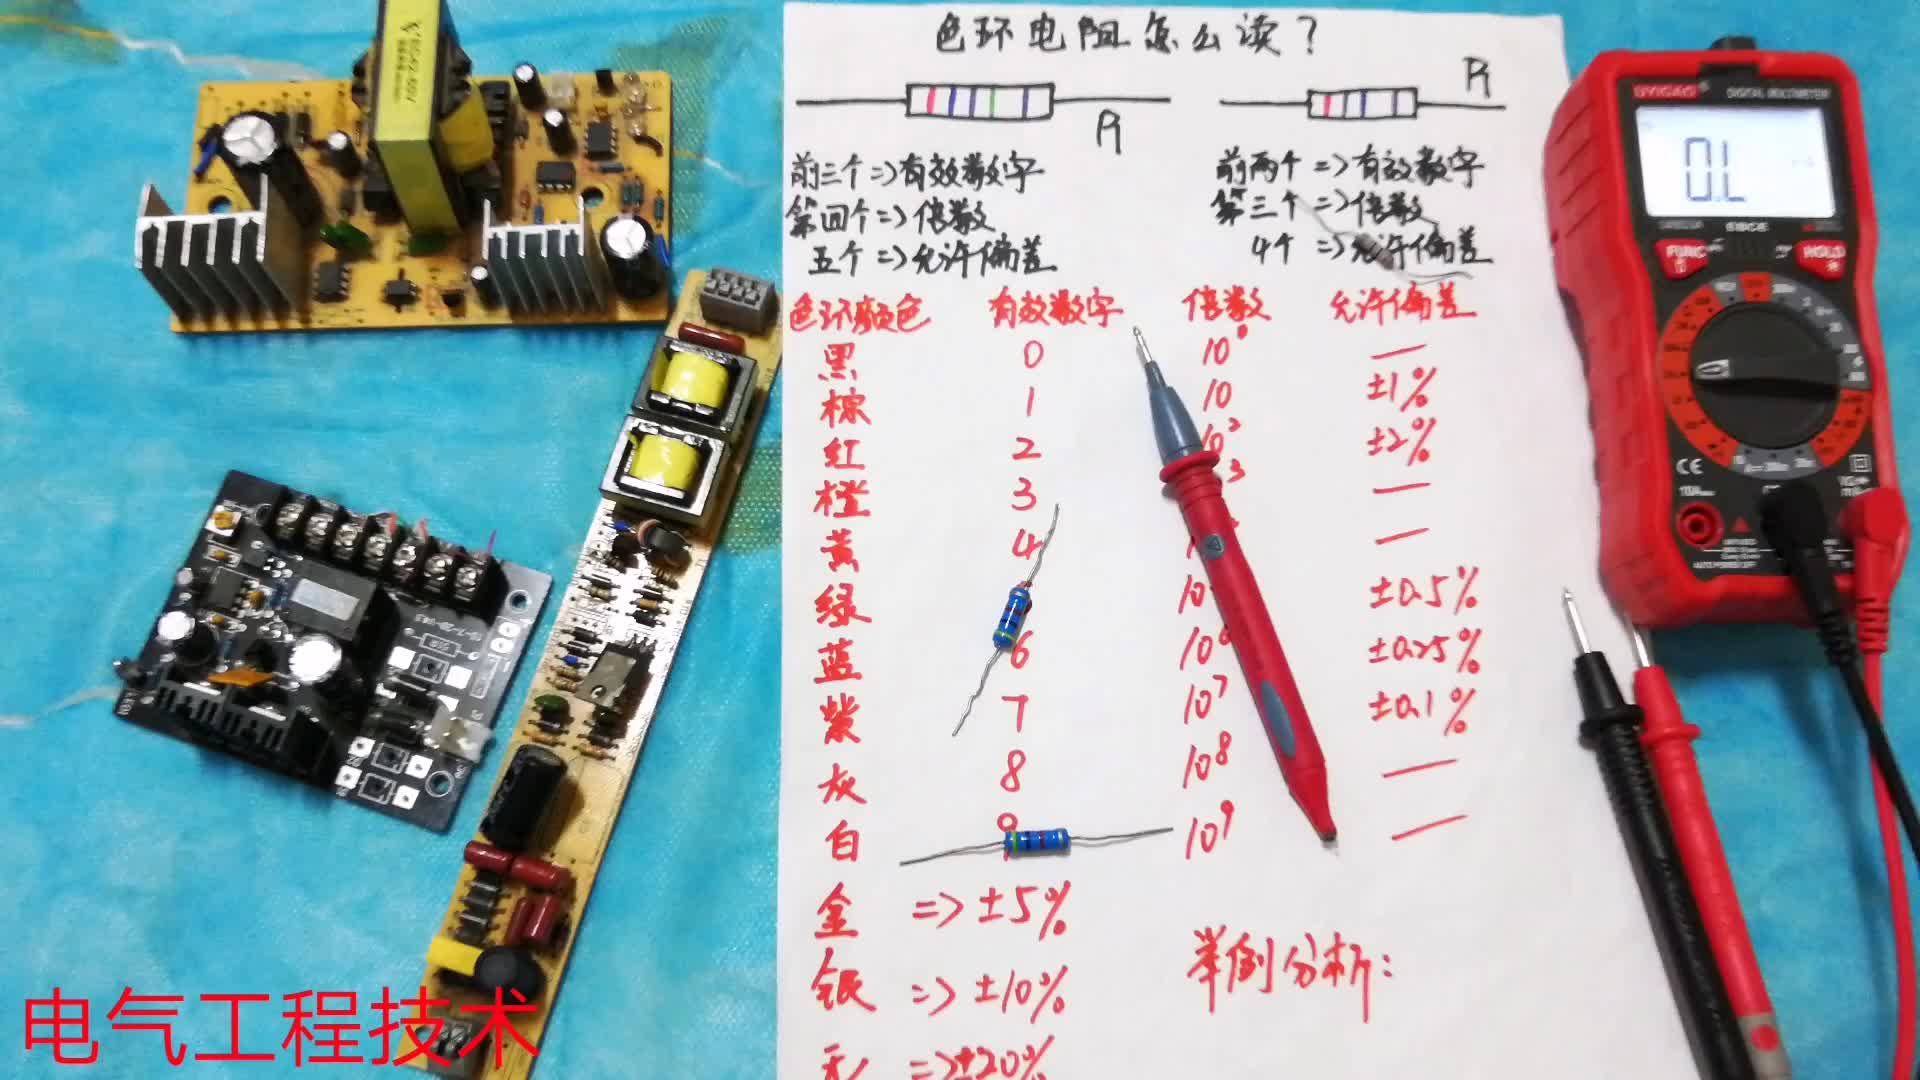 色环电阻怎么读?
R
R
前三个=>有效数字
第四个=>倍数
五个=>允许偏差
前两个=>有效数字
第三个=>倍数
4个=>允许偏差
色环颜色 有效数字 倍数 允许偏差
黑 0 10⁰ —
棕 1 10 ±1%
红 2 10² ±2%
橙 3 3 —
黄 4 —
绿 10 ±0.5%
蓝 6 10⁶ ±0.25%
紫 7 10⁷ ±0.1%
灰 8 10⁸ —
白 9 10⁹ —
金 => ±5%
银 => ±10%
无 => ±20%
举例分析:
电气工程技术
DIGITAL MULTIMETER
O.L
FUNC
HOLD
CE
10A